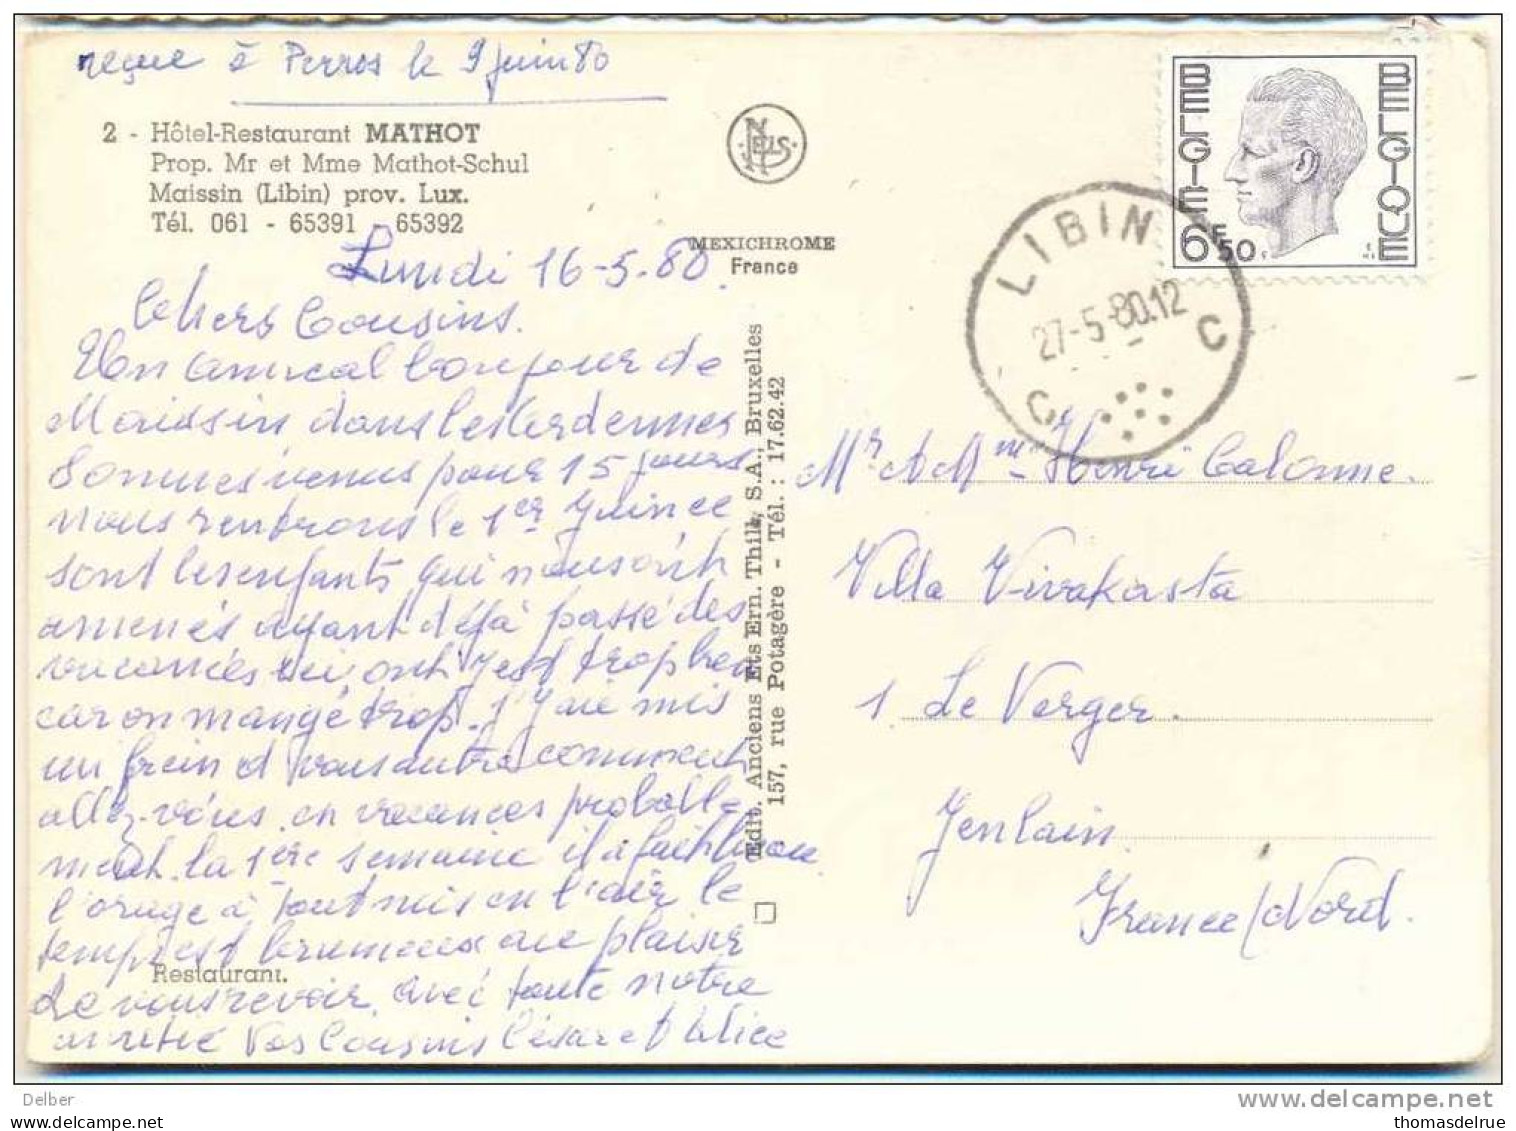 reçue à Perros le 9 juin 80
2 - Hôtel-Restaurant MATHOT
Prop. Mr et Mme Mathot-Schul
Maissin (Libin) prov. Lux.
Tél. 061 - 65391 65392
NELS
MEXICHROME
France
Lundi 16-5-80.
Chers Cousins.
Un amical bonjour de
Maissin dans les Ardennes
Sommes venus pour 15 jours
nous rentrons le 1er Juin ce
sont les enfants qui nous ont
amenés ayant déjà passé des
vacances ici
car on mange trop. J'y ai mis
un frein et vous autre comment
allez-vous. en vacances probable-
ment. la 1ère semaine il a fait beau
l'orage à tout mis en l'air le
temps est brumeux au plaisir
de vous revoir avec toute notre
amitié Vos Cousins César et Alice
Restaurant.
Edit. Anciens Ets Ern. Thill, S.A., Bruxelles
157, rue Potagère - Tél. : 17.62.42
BELGIE BELGIQUE
6F50
LIBIN
27-5-80.12
C C
Mr & Mme Henri Calonne.
Villa Vivakasta
1 Le Verger.
Jenlain
France/Nord.
Delber
delcampe.net
reçu
thomasdelrue